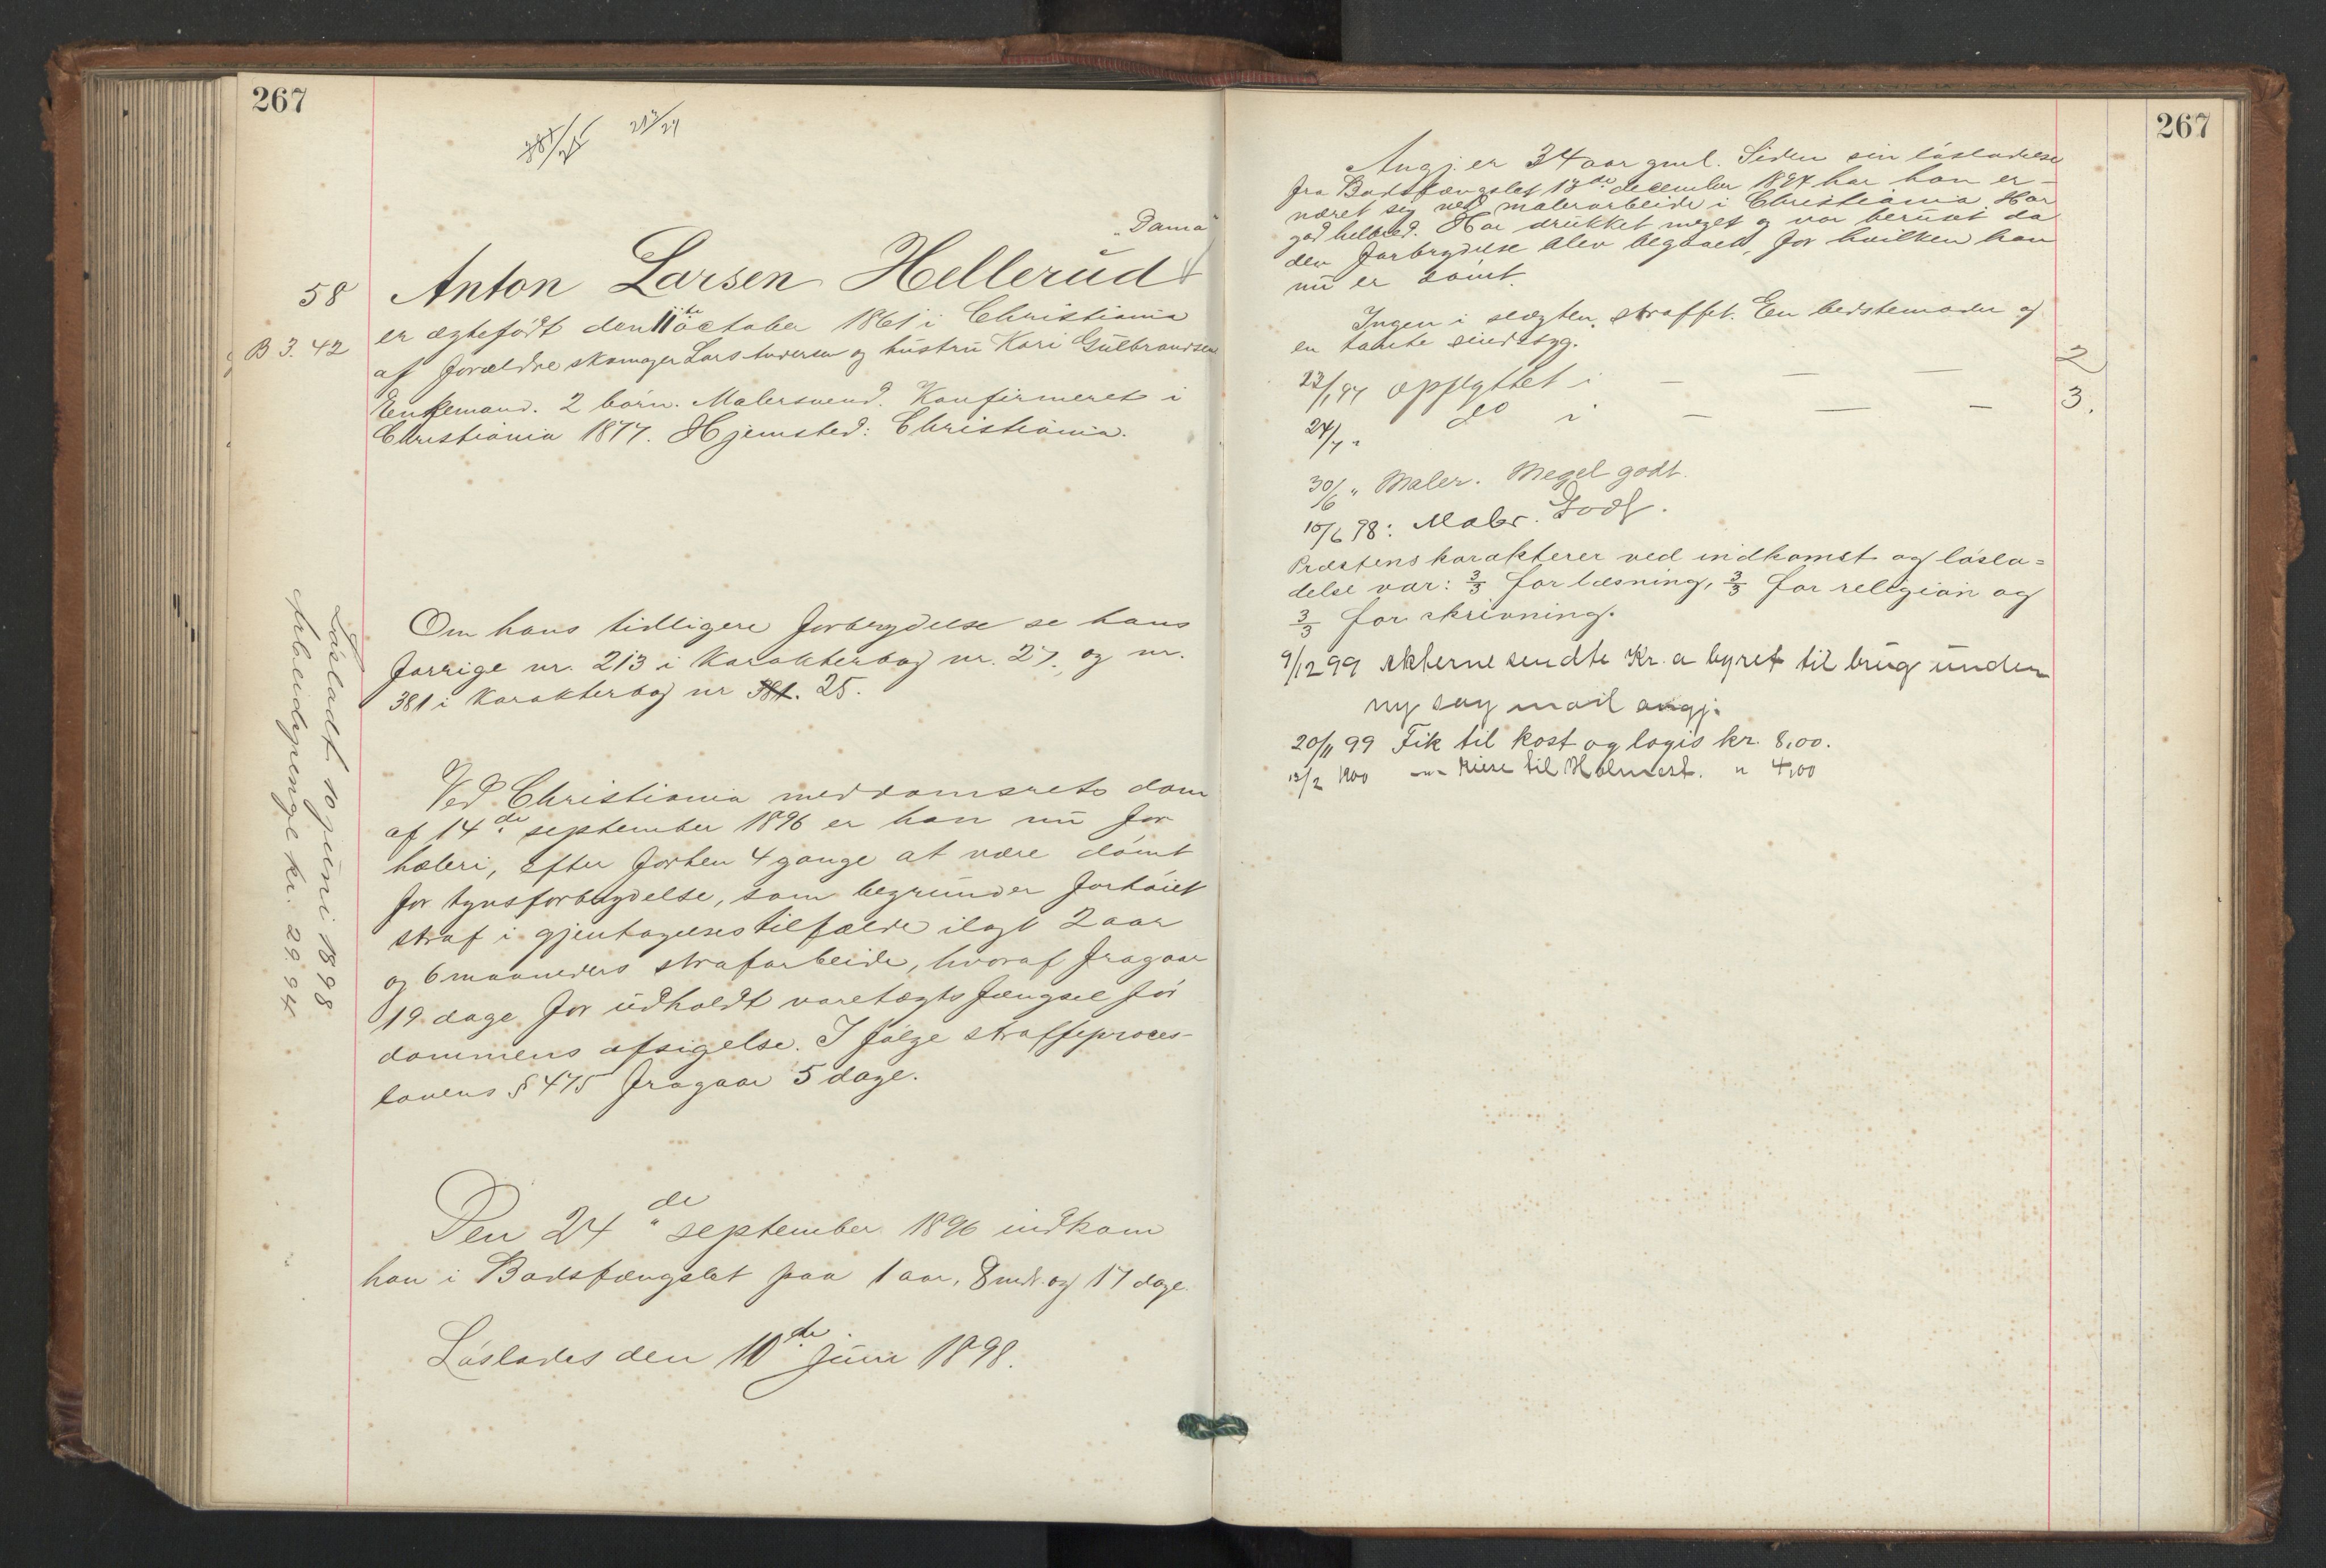 267
21/27
"Dama"
58 Anton Larsen Hellerud
er ægtefødt den 11te october 1861 i Christiania
B 3. 42
af forældre skomager Lars Iversen og hustru Kari Gulbrandsen
Enkemand. 2 børn. Malersvend. Konfirmeret i
Christiania 1877. Hjemsted: Christiania.
Om hans tidligere forbrydelse se hans
forrige nr. 213 i Karakterbog nr. 27, og nr.
381 i Karakterbog nr 381. 25.
Ved Christiania meddomsrets dom
af 14de september 1896 er han nu for
hæleri, efter forhen 4 gange at være dømt
for tyvsforbrydelse, som begrunder forhøiet
straf i gjentagelsestilfælde ilagt 2 aar
og 6 maaneders strafarbeide, hvoraf fragaar
19 dage for udholdt varetægts fængsel før
dommens afsigelse. I følge straffeproces-
lovens § 475 fragaar 5 dage.
Den 24de september 1896 indkom
han i Bodsfængslet paa 1 aar, 8 mdr. og 17 dage.
Løslades den 10de juni 1898.
Løsladt 10 juni 1898
Arbeidspenge kr. 29.94
267
Angj. er 34 aar gml. Siden sin løsladelse
fra Bodsfængslet 13de december 1894 har han er-
næret sig ved malerarbeide i Christiania. Har
god helbred. Har drukket meget og var beruset da
den forbrydelse blev begaaet, for hvilken han
nu er dømt.
Ingen i slægten straffet. En bedstemoder og
en tante sindssyg.
23/1 97 opflyttet i — — — 2
24/7 " do i — — — 3.
30/6 " Maler. Meget godt.
10/6 98: Maler. Godt.
Præstens karakterer ved indkomst og løsla=
delse var: 3/3 for læsning, 3/3 for religion og
3/3 for skrivning.
9/12 99 akterne sendte Kr.a byret til brug under
ny sag mod angj.
20/11 99 Fik til kost og logis kr. 8,00.
13/2 1900 -"- Reise til Holmest. " 4,00